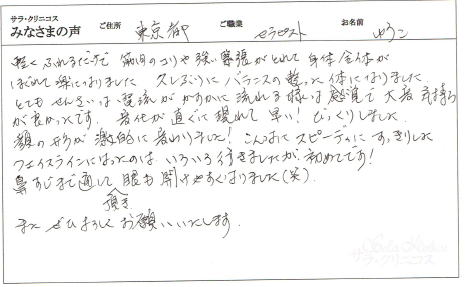 サラ・クリニコス
みなさまの声 ご住所 東京都 ご職業 セラピスト お名前 ゆうこ
軽くふれるだけで 筋肉のコリや強い緊張がとれて 身体全体が
ほぐれて楽になりました。久しぶりに バランスの整った体になりました。
とても せんさいな電流が かすかに流れる様な感覚で 大変気持ち
が良かったです。変化が直ぐに現れて 早い! びっくりしました。
顔の方が 激的に変わりました! こんなに スピーディに すっきりした
フェイスラインになったのは いろいろ行きましたが 初めてです!
鼻すじまで 通して 眼も開けやすくなりました(笑).
頂き
また ぜひよろしく お願いいたします.
サラ・クリニコス